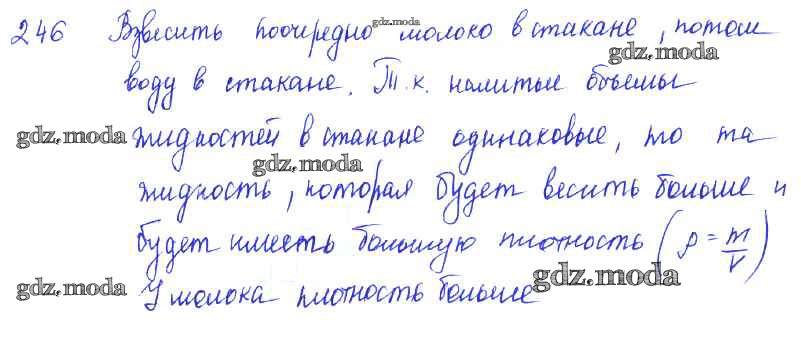 246 Взвесить поочередно молоко в стакане, потом
gdz.moda
gdz.moda
воду в стакане. Т.к. налитые объемы
gdz.moda жидкостей в стакане одинаковые, то та
gdz.moda
жидкость, которая будет весить больше и
будет иместь большую плотность (ρ = m/V)
gdz.moda У молока плотность больше gdz.moda